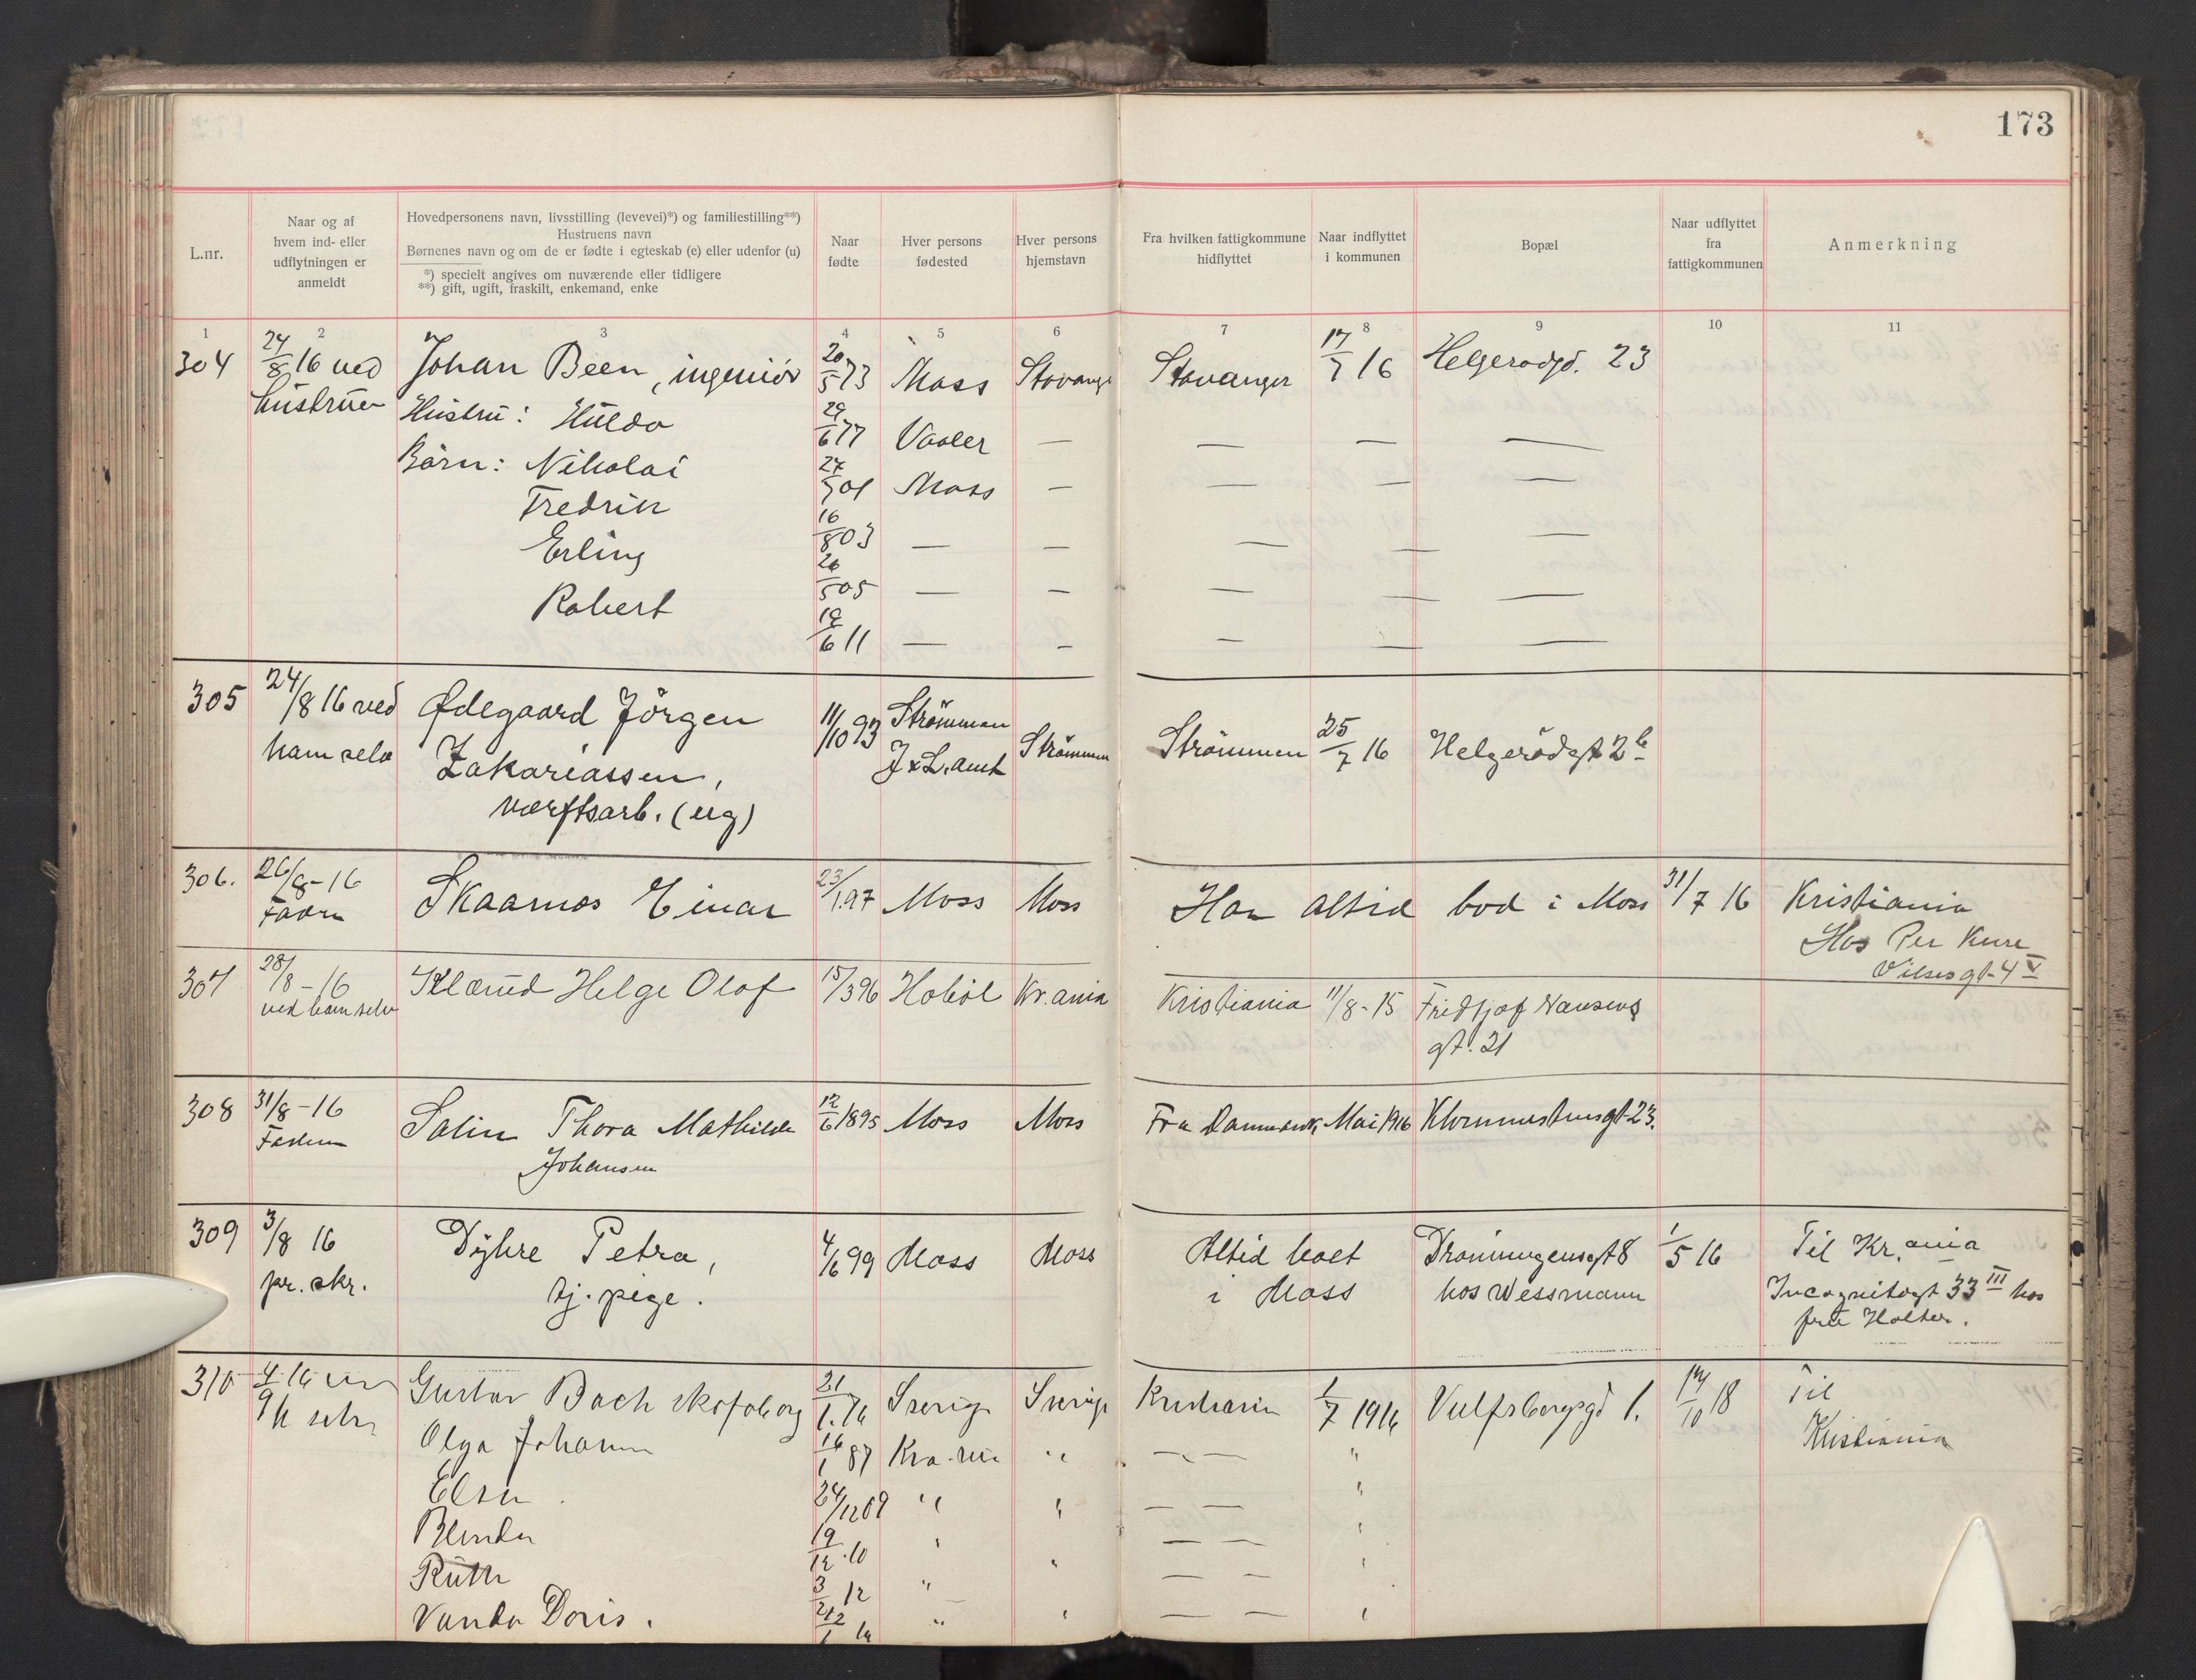 173
L.nr.
Naar og af hvem ind- eller udflytningen er anmeldt
Hovedpersonens navn, livsstilling (levevei)*) og familiestilling**)
Hustruens navn
Børnenes navn og om de er fødte i egteskab (e) eller udenfor (u)
*) specielt angives om nuværende eller tidligere
**) gift, ugift, fraskilt, enkemand, enke
Naar fødte
Hver persons fødested
Hver persons hjemstavn
Fra hvilken fattigkommune hidflyttet
Naar indflyttet i kommunen
Bopæl
Naar udflyttet fra fattigkommunen
Anmerkning
1 2 3 4 5 6 7 8 9 10 11
304 24/8 16 ved Johan Been, ingeniör 20/5 73 Moss Stavanger Stavanger 17/7 16 Helgerødgd. 23
hustruen Hustru: Hulda 29/6 77 Vaaler — — — —
Börn: Nikolai 27/7 01 Moss — — — —
Fredrik 16/8 03 — — — — —
Erling 26/5 05 — — — — —
Robert 19/6 11 — — — — —
305 24/8 16 ved Ødegaard Jörgen 11/10 93 Strömmen Strömmen Strömmen 25/7 16 Helgerödgt 2b
ham selv Zakariassen, J x L. amt
værftsarb. (ug)
306. 26/8-16 Skaarnes Einar 23/1 97 Moss Moss Har altid bod i Moss 31/7 16 Kristiania
Faderen Hos Per Kure
Vilsesgt-4 V
307 28/8-16 Klærud Helge Olof 15/3 96 Hobøl Kr.ania Kristiania 11/8-15 Fridtjof Nansens
ved ham selv gt. 21
308 31/8-16 Salin Thora Mathilde 12/6 1895 Moss Moss Fra Danmark Mai 1916 Klommestensgt-23.
Faderen Johansen
309 3/8 16 Dyhre Petra, 4/6 99 Moss Moss Altid boet Dronningensgt 8 1/5 16 Til Kr.ania
pr. skr. tj. pige. i Moss hos Wessmann Incognitogt 33 III hos
fru Holter.
310 Gustav Bach 21/1 Sverige Sverige Kristiania 1/7 1916 Vulfsbergsgd 1. 14/10 18 Til
Olga Johanne 16/1 87 Kra.nia " — — " Kristiania
Elsa 24/12 09 " " — — "
Blenda 19/12 10 " — — "
Ruth 3/2 12 " " — — "
Vanda Doris. " " — — "